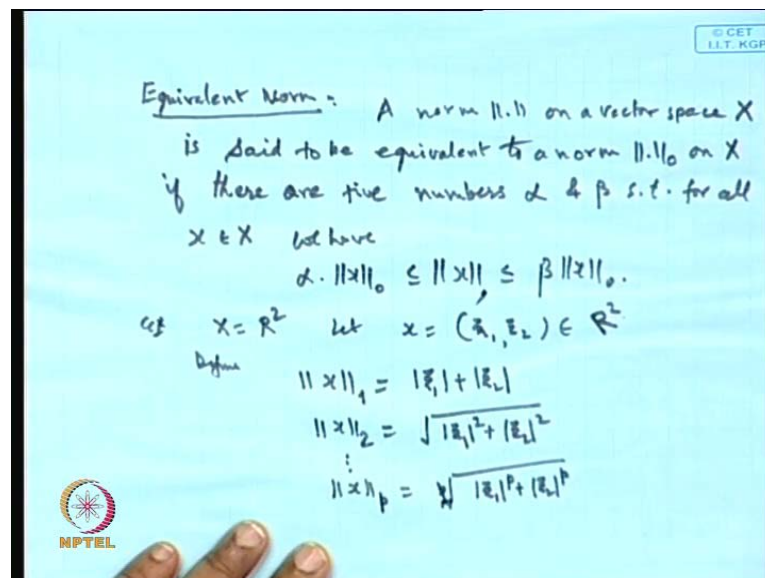 © CET
I.I.T. KGP
Equivalent Norm: A norm ||.|| on a vector space X
is said to be equivalent to a norm ||.||₀ on X
if there are +ive numbers α & β s.t. for all
x ∈ X we have
α. ||x||₀ ≤ ||x|| ≤ β ||x||₀.
let X = R² let x = (ξ₁, ξ₂) ∈ R²
Define
||x||₁ = |ξ₁| + |ξ₂|
||x||₂ = √(|ξ₁|² + |ξ₂|²)
⋮
||x||ₚ = ᵖ√(|ξ₁|ᵖ + |ξ₂|ᵖ)
NPTEL